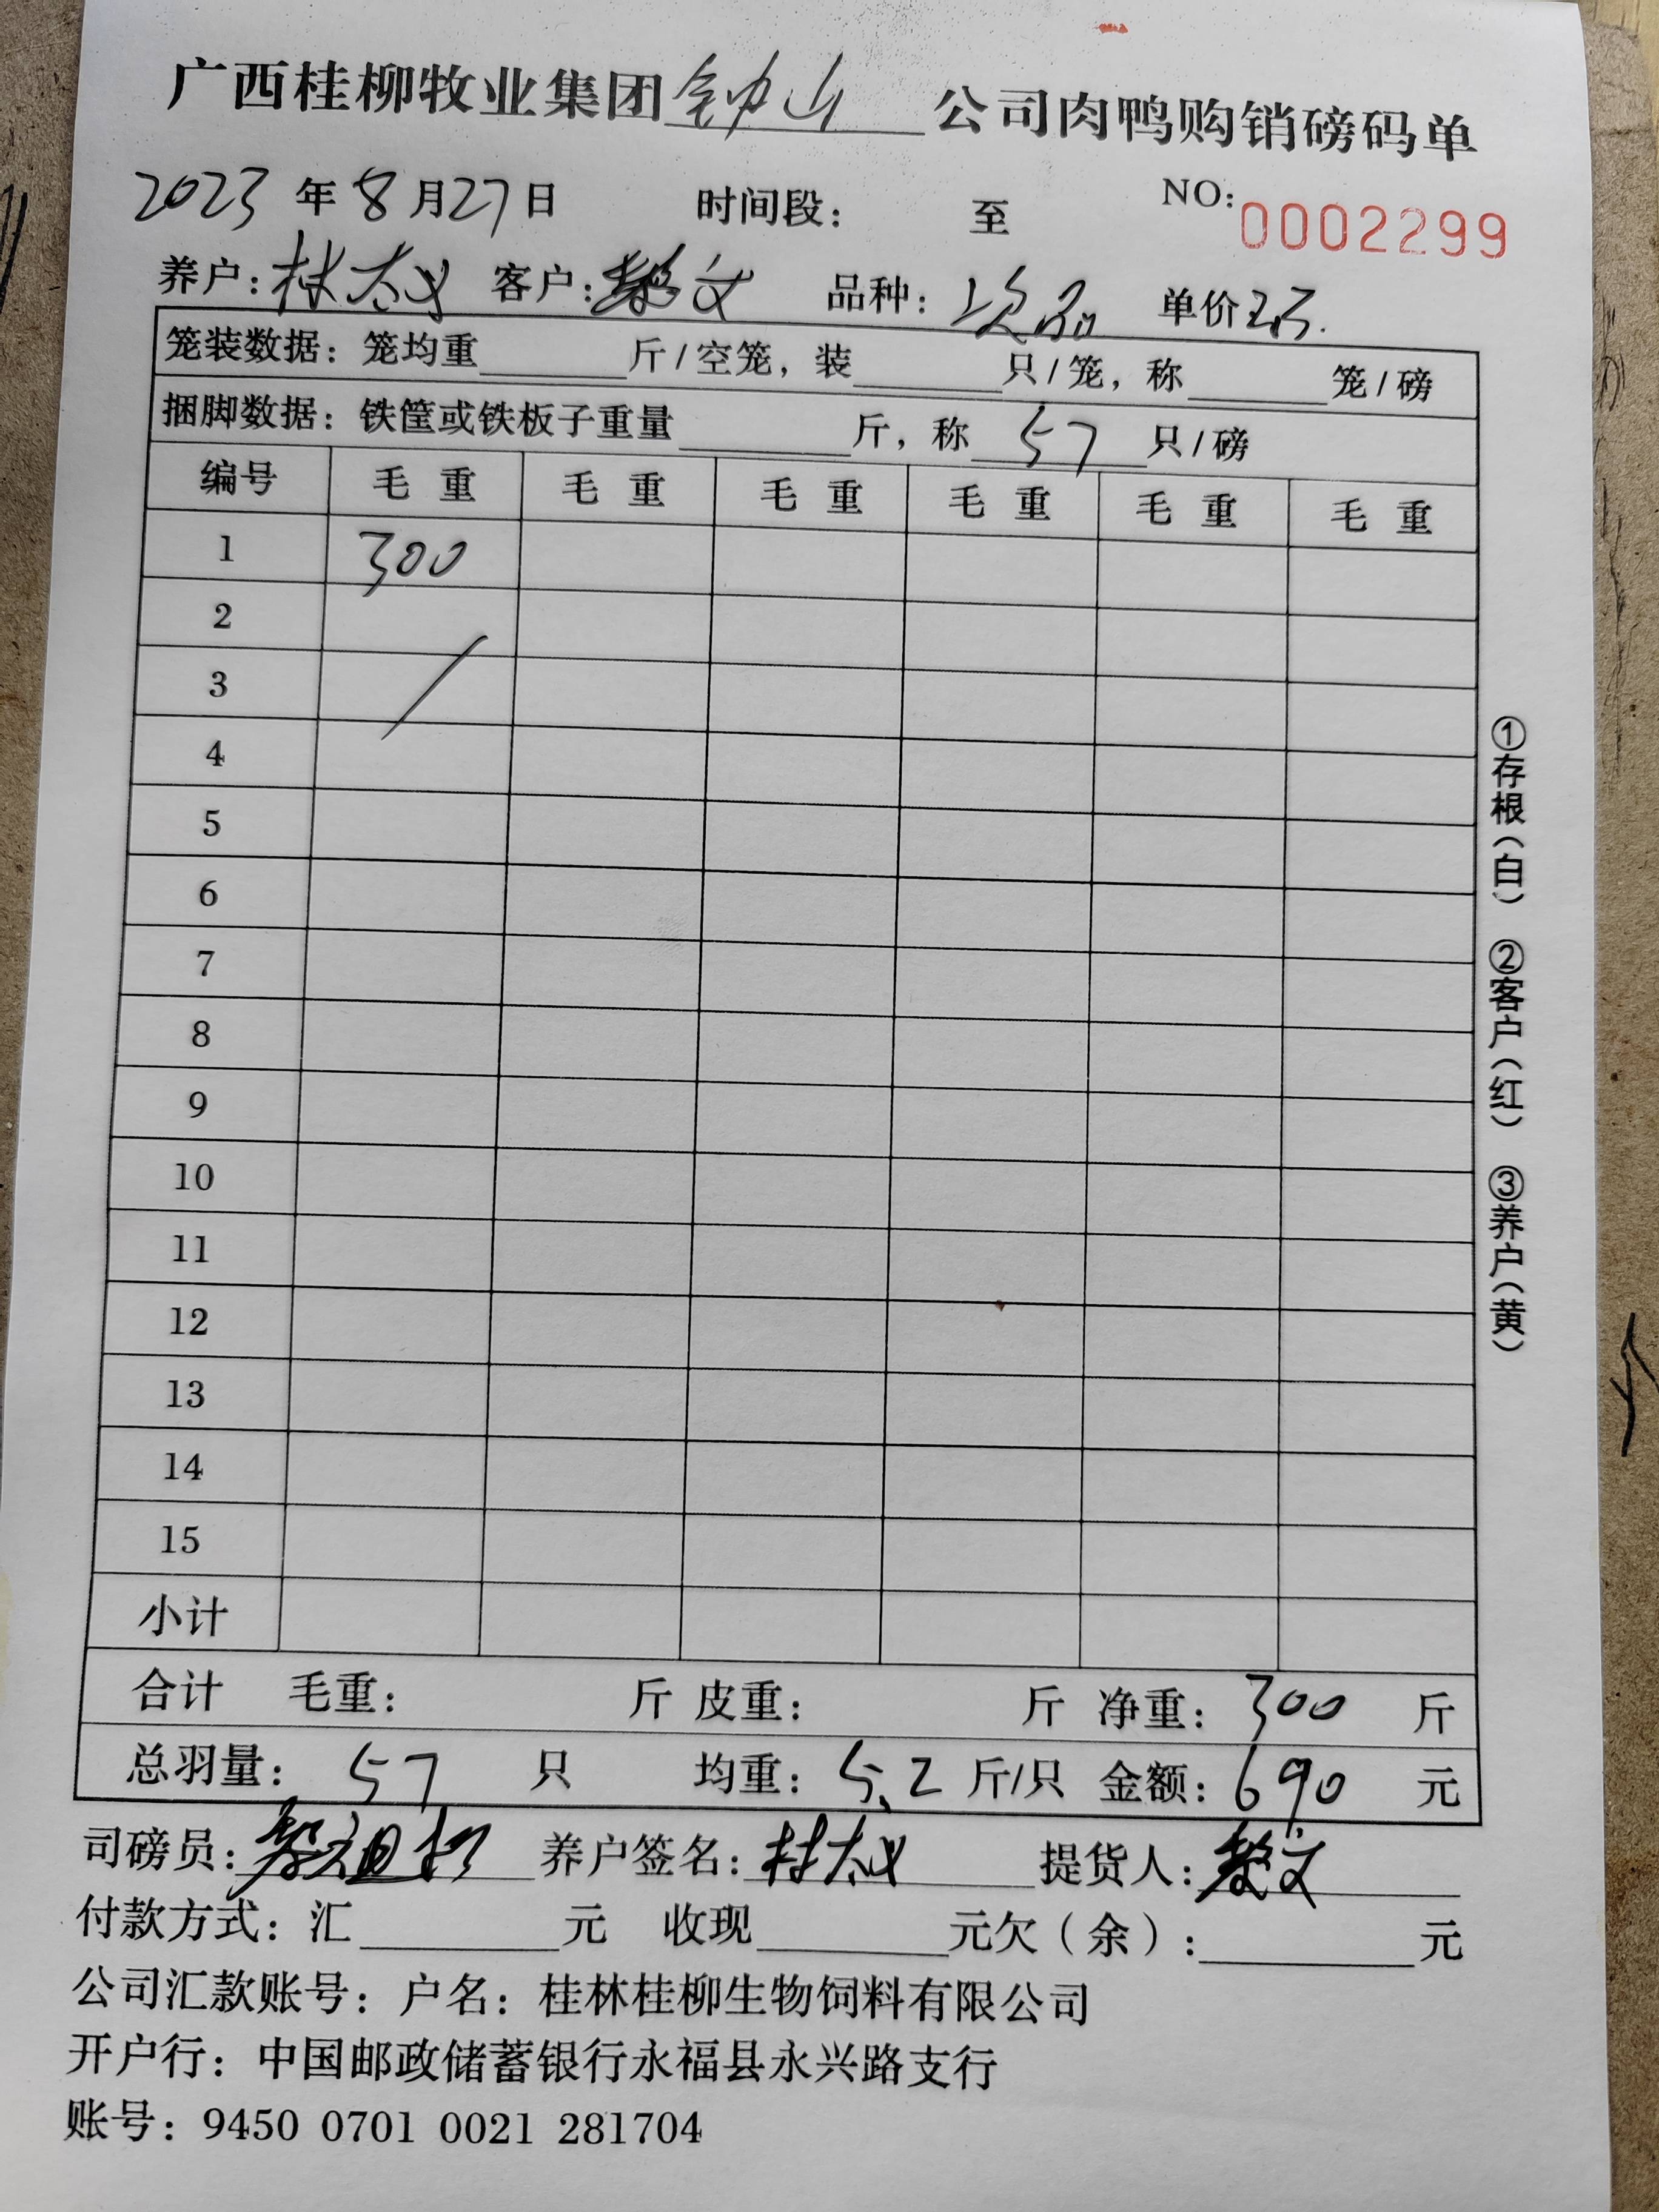 广西桂柳牧业集团钟山公司肉鸭购销磅码单
2023年8月27日 时间段： 至 NO:0002299
养户:林太义 客户:黎文 品种：次品 单价2.3.
笼装数据：笼均重 斤/空笼，装 只/笼，称 笼/磅
捆脚数据：铁筐或铁板子重量 斤，称57只/磅
编号 毛重 毛重 毛重 毛重 毛重 毛重
1 300
2
3
4
5
6
7
8
9
10
11
12
13
14
15
小计
合计 毛重： 斤 皮重： 斤 净重：300 斤
总羽量：57 只 均重：5.2斤/只 金额：690 元
司磅员： 养户签名：林太义 提货人：黎文
付款方式：汇 元 收现 元欠（余）: 元
公司汇款账号：户名：桂林桂柳生物饲料有限公司
开户行：中国邮政储蓄银行永福县永兴路支行
账号：9450 0701 0021 281704
①存根（白） ②客户（红） ③养户（黄）